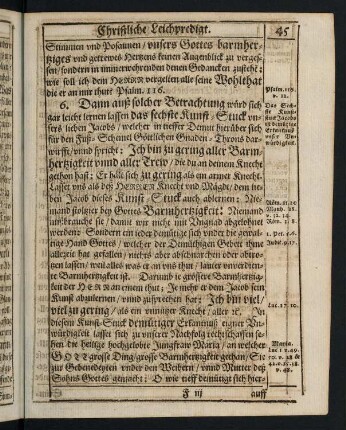 Christliche Leichpredigt.
45
Stimmen vnd Posaunen / vnsers Gottes barmher-
tziges vnd getrewes Hertzens keinen Augenblick zu verges-
sen / sondern in immerwehrenden denen Gedancken zusteht;
wie soll ich dem HERREN vergelten alle seine Wohlthat
die er an mir thut? Psalm. 116.
6. Dann auß solcher Betrachtung würd sich
gar leicht lernen lassen das sechste Kunst / Stuck vn-
sers lieben Jacobs / welcher in tieffer Demut hierüber sich
für den Füß-Schemel Göttlichen Gnaden-Throns dar-
würfft / vnd spricht: Ich bin zu gering aller Barm-
hertzigkeit vnnd aller Trew / die du an deinem Knecht
gethon hast: Er hält sich zu gering als ein armer Knecht.
Lasset vns als bey HERREN Knecht vnd Mägde / dem lie-
ben Jacob dieses Kunst / Stuck auch ablernen: Nie-
mand stoltzire bey Gottes Barmhertzigkeit: Niemand
mißbrauche sie / damit wir nicht mit Vngnad abgelohnet
werden: Sondern ein ieder demütige sich vnder die gewal-
tige Hand Gottes / welcher der Demütigen Gebett ihme
allezeit hat gefallen / nichts aber abschmarchen oder abtro-
tzen lassen / weil alles was er an vns thut / lauter vnverdien-
te Barmhertzigkeit ist. Darumb ie grössere Barmhertzig-
keit der HERR an einem thut; Je mehr er dem Jacob sein
Kunst abzulernen / vnnd zusprechen hat: Ich bin viel/
viel zu gering / als ein vnnützer Knecht / aller &c. In
diesem Kunst-Stuck demütiger Erkantnuß eigner Vn-
würdigkeit lasset sich zu vnserer Nachfolg rechtschaffen se-
hen die heilige hochgelobte Jungfraw Maria / an welcher
GOTT grosse Ding / grosse Barmhertzigkeit gethan / Sie
zur Gebenedeyten vnder den Weibern / vnnd Mutter deß
Sohns Gottes gemacht: O wie tieff demütigt sich hier-
F iij
auff
Psalm. 116.
v. 12.
Das Sech-
ste Kunst-
stuck Jacobs
ist demütige
Erkantnus
vnser Vn-
würdigkeit.
1. Pet. 5. 6.
Judit. 9. 17.
Luc. 17. 10.
Maria.
Luc. 1. v. 49.